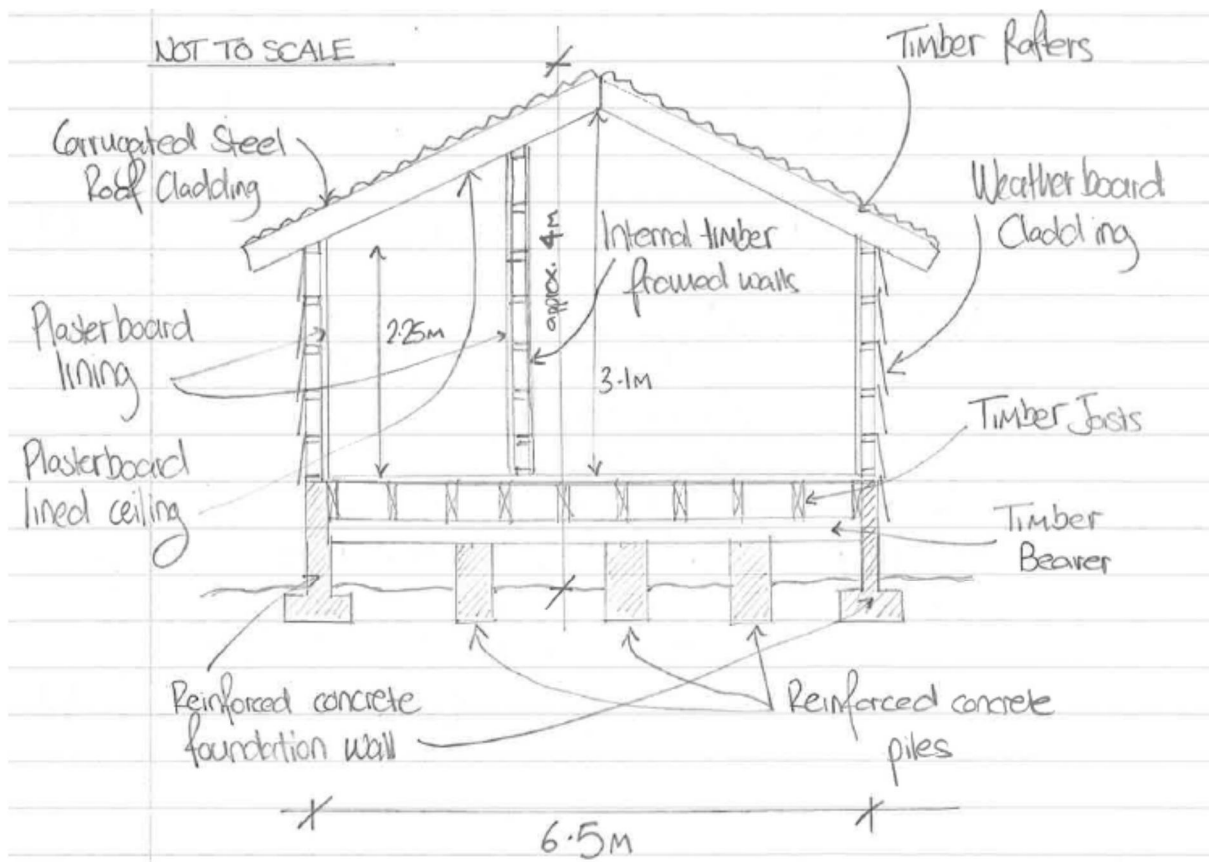 NOT TO SCALE
Timber Rafters
Corrugated Steel
Roof Cladding
Weatherboard
Cladding
Internal timber
framed walls
approx. 4m
2.25m
3.1m
Plasterboard
lining
Timber Joists
Plasterboard
lined ceiling
Timber
Bearer
Reinforced concrete
foundation wall
Reinforced concrete
piles
6.5m